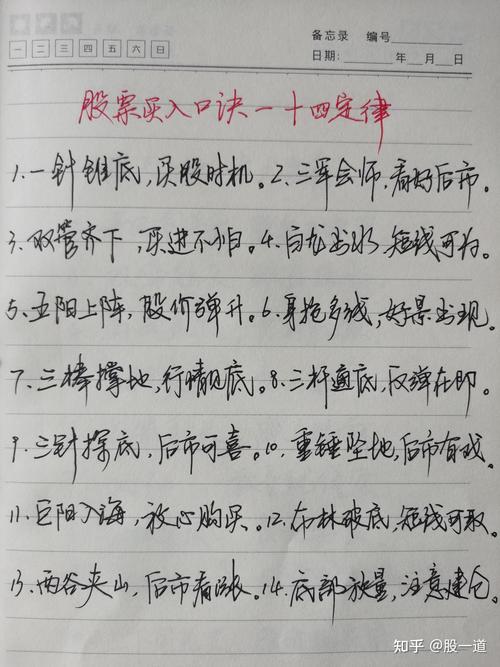 备忘录 编号
一 二 三 四 五 六 日
日期: 年 月 日
股票买入口诀一十四定律
1.一针锥底，买股时机。2.三军会师，看好后市。
3.双管齐下，买进不怕。4.白龙出水，短线可为。
5.五阳上阵，股价弹升。6.身抱多线，好景出现。
7.三棒撑地，行情见底。8.三杆通底，反弹在即。
9.三针探底，后市可喜。10.重锤坠地，后市有戏。
11.巨阳入海，放心购买。12.布林破底，短线可取。
13.两谷夹山，后市看涨。14.底部放量，注意建仓。
知乎 @股一道